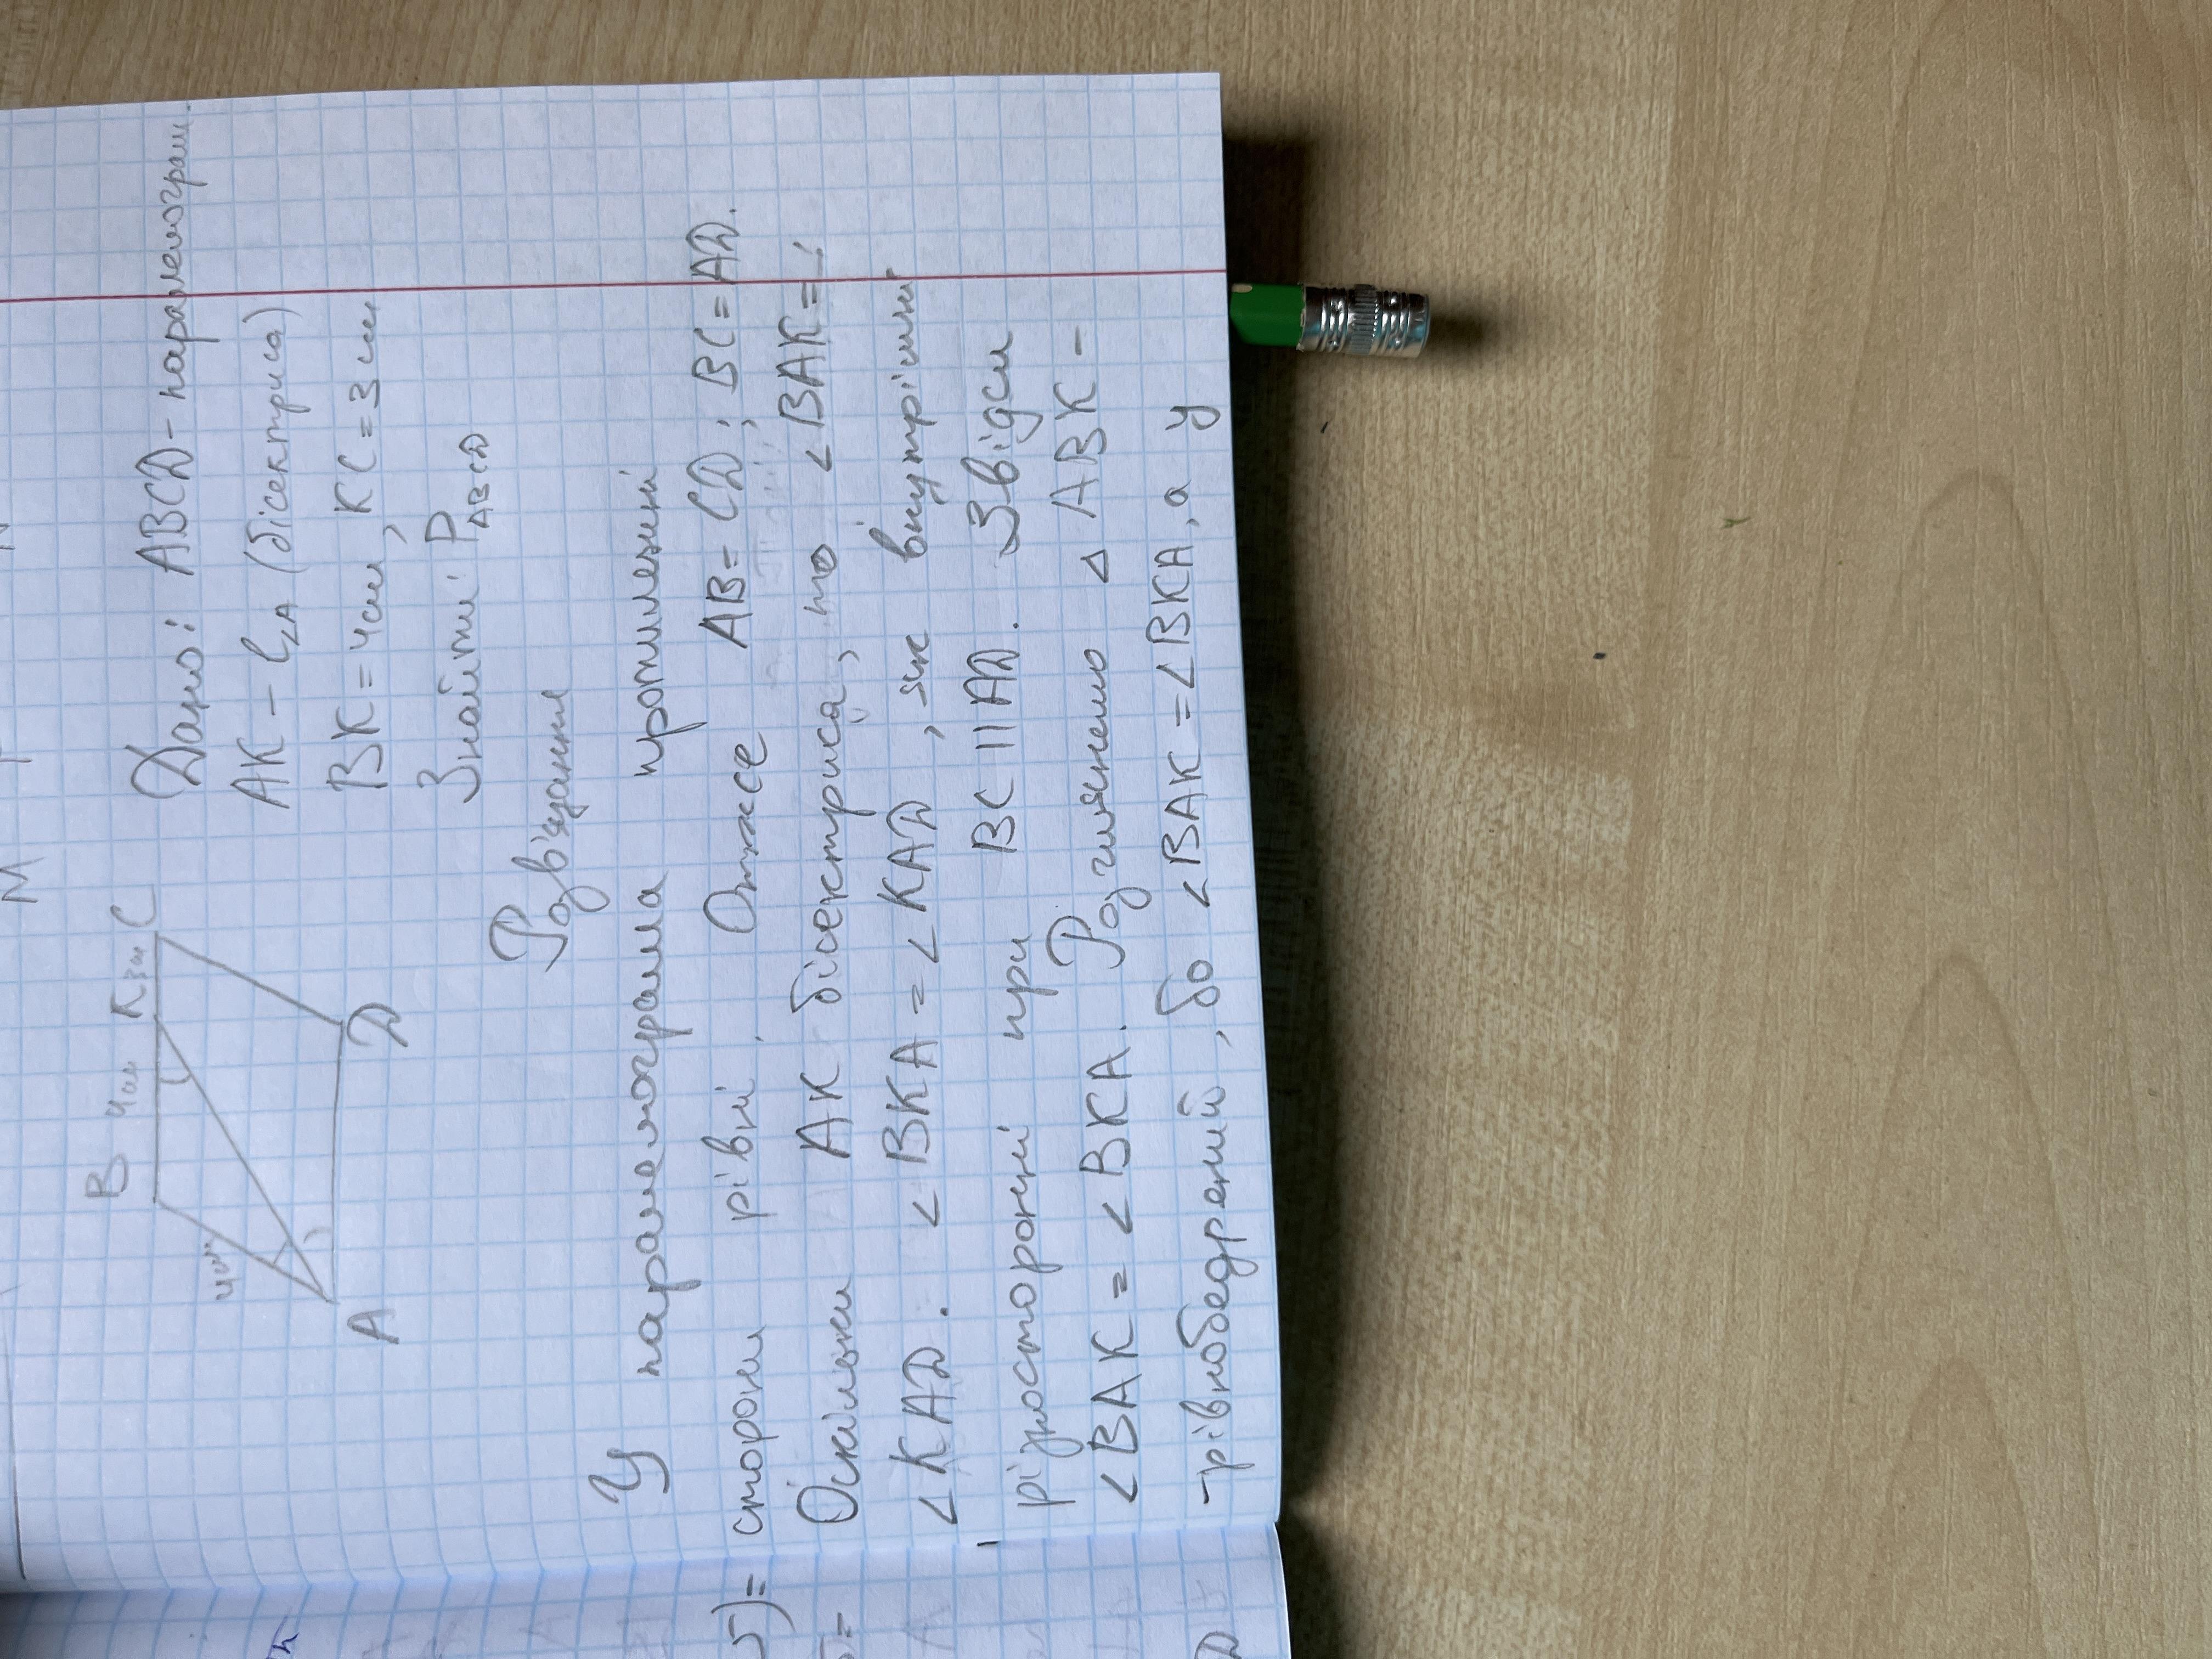 M
B 4см K 3см C
4см
A
D
Дано: ABCD - паралелограм.
AK - l∠A (бісектриса)
BK = 4см, KC = 3см
Знайти: P ABCD
Розв'язання
У паралелограма протилежні
сторони рівні. Отже AB = CD; BC = AD.
Оскільки AK бісектриса, то ∠BAK =
∠KAD. ∠BKA = ∠KAD, як внутрішні
різносторонні при BC || AD. Звідси
∠BAK = ∠BKA. Розглянемо △ABK -
- рівнобедрений, бо ∠BAK = ∠BKA, а у